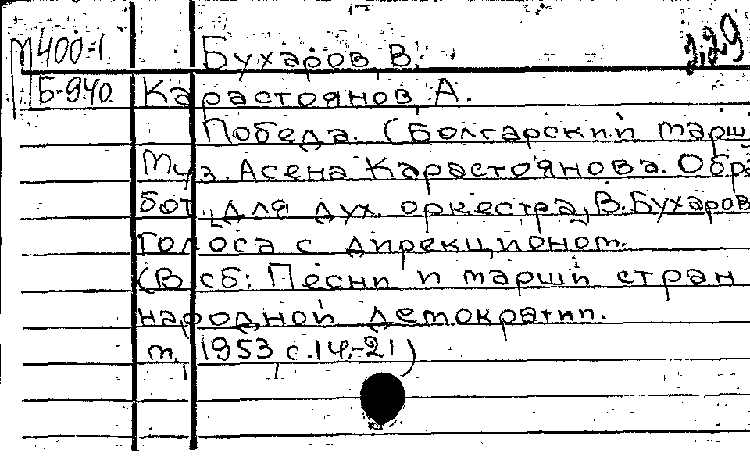 М400-1 Бухаров, В. 2,29
Б-940. Карастоянов, А.
Победа. (Болгарский марш
Муз. Асена Карастоянова. Обра
бот. для дух. оркестра, В. Бухаров
Голоса с дирекционом.
(В сб: Песни и марши стран
народной демократии.
м, 1953, с. 14-21)